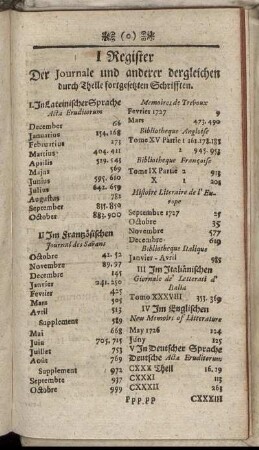 (0)
I Register
Der Journale und anderer dergleichen
durch Theile fortgesetzten Schrifften.
I. In Lateinischer Sprache
Acta Eruditorum
December 66
Januarius 134, 168
Februarius 273
Martius 404, 411
Aprilis 529, 545
Majus 569
Junius 595, 610
Julius 642, 653
Augustus 782
September 831, 859
October 883, 900
II Im Französischen
Journal des Savans
October 42, 52
November 89, 97
December
Janvier 241, 250
Fevrier 405
Mars 505
Supplement 589
Mai 668
Juin 705, 715
Juillet
Août 765
Supplement 972
September 937
Octobre 999
Memoires de Trevoux
Fevrier 1727 9
Mars 473, 490
Bibliotheque Angloise
Tome XV Partie 1 161, 178, 181
2 945, 953
Bibliotheque Françoise
Tome IX Partie 2 918
X 1 208
Histoire Literaire de l' Eu-
rope
Septembre 1727 25
Octobre 35
Novembre 577
Decembre 619
Bibliotheque Italique
Janvier - Avril 585
III Im Italiänischen
Giornale de' Letterati d'
Italia
Tomo XXXVIII 351, 369
IV Im Englischen
New Memoirs of Litterature
May 1726 24
Juny 125
V In Deutscher Sprache
Deutsche Acta Eruditorum
CXXX Theil 16, 19
CXXXI 113
CXXXII 263
Ppp pp CXXXIII